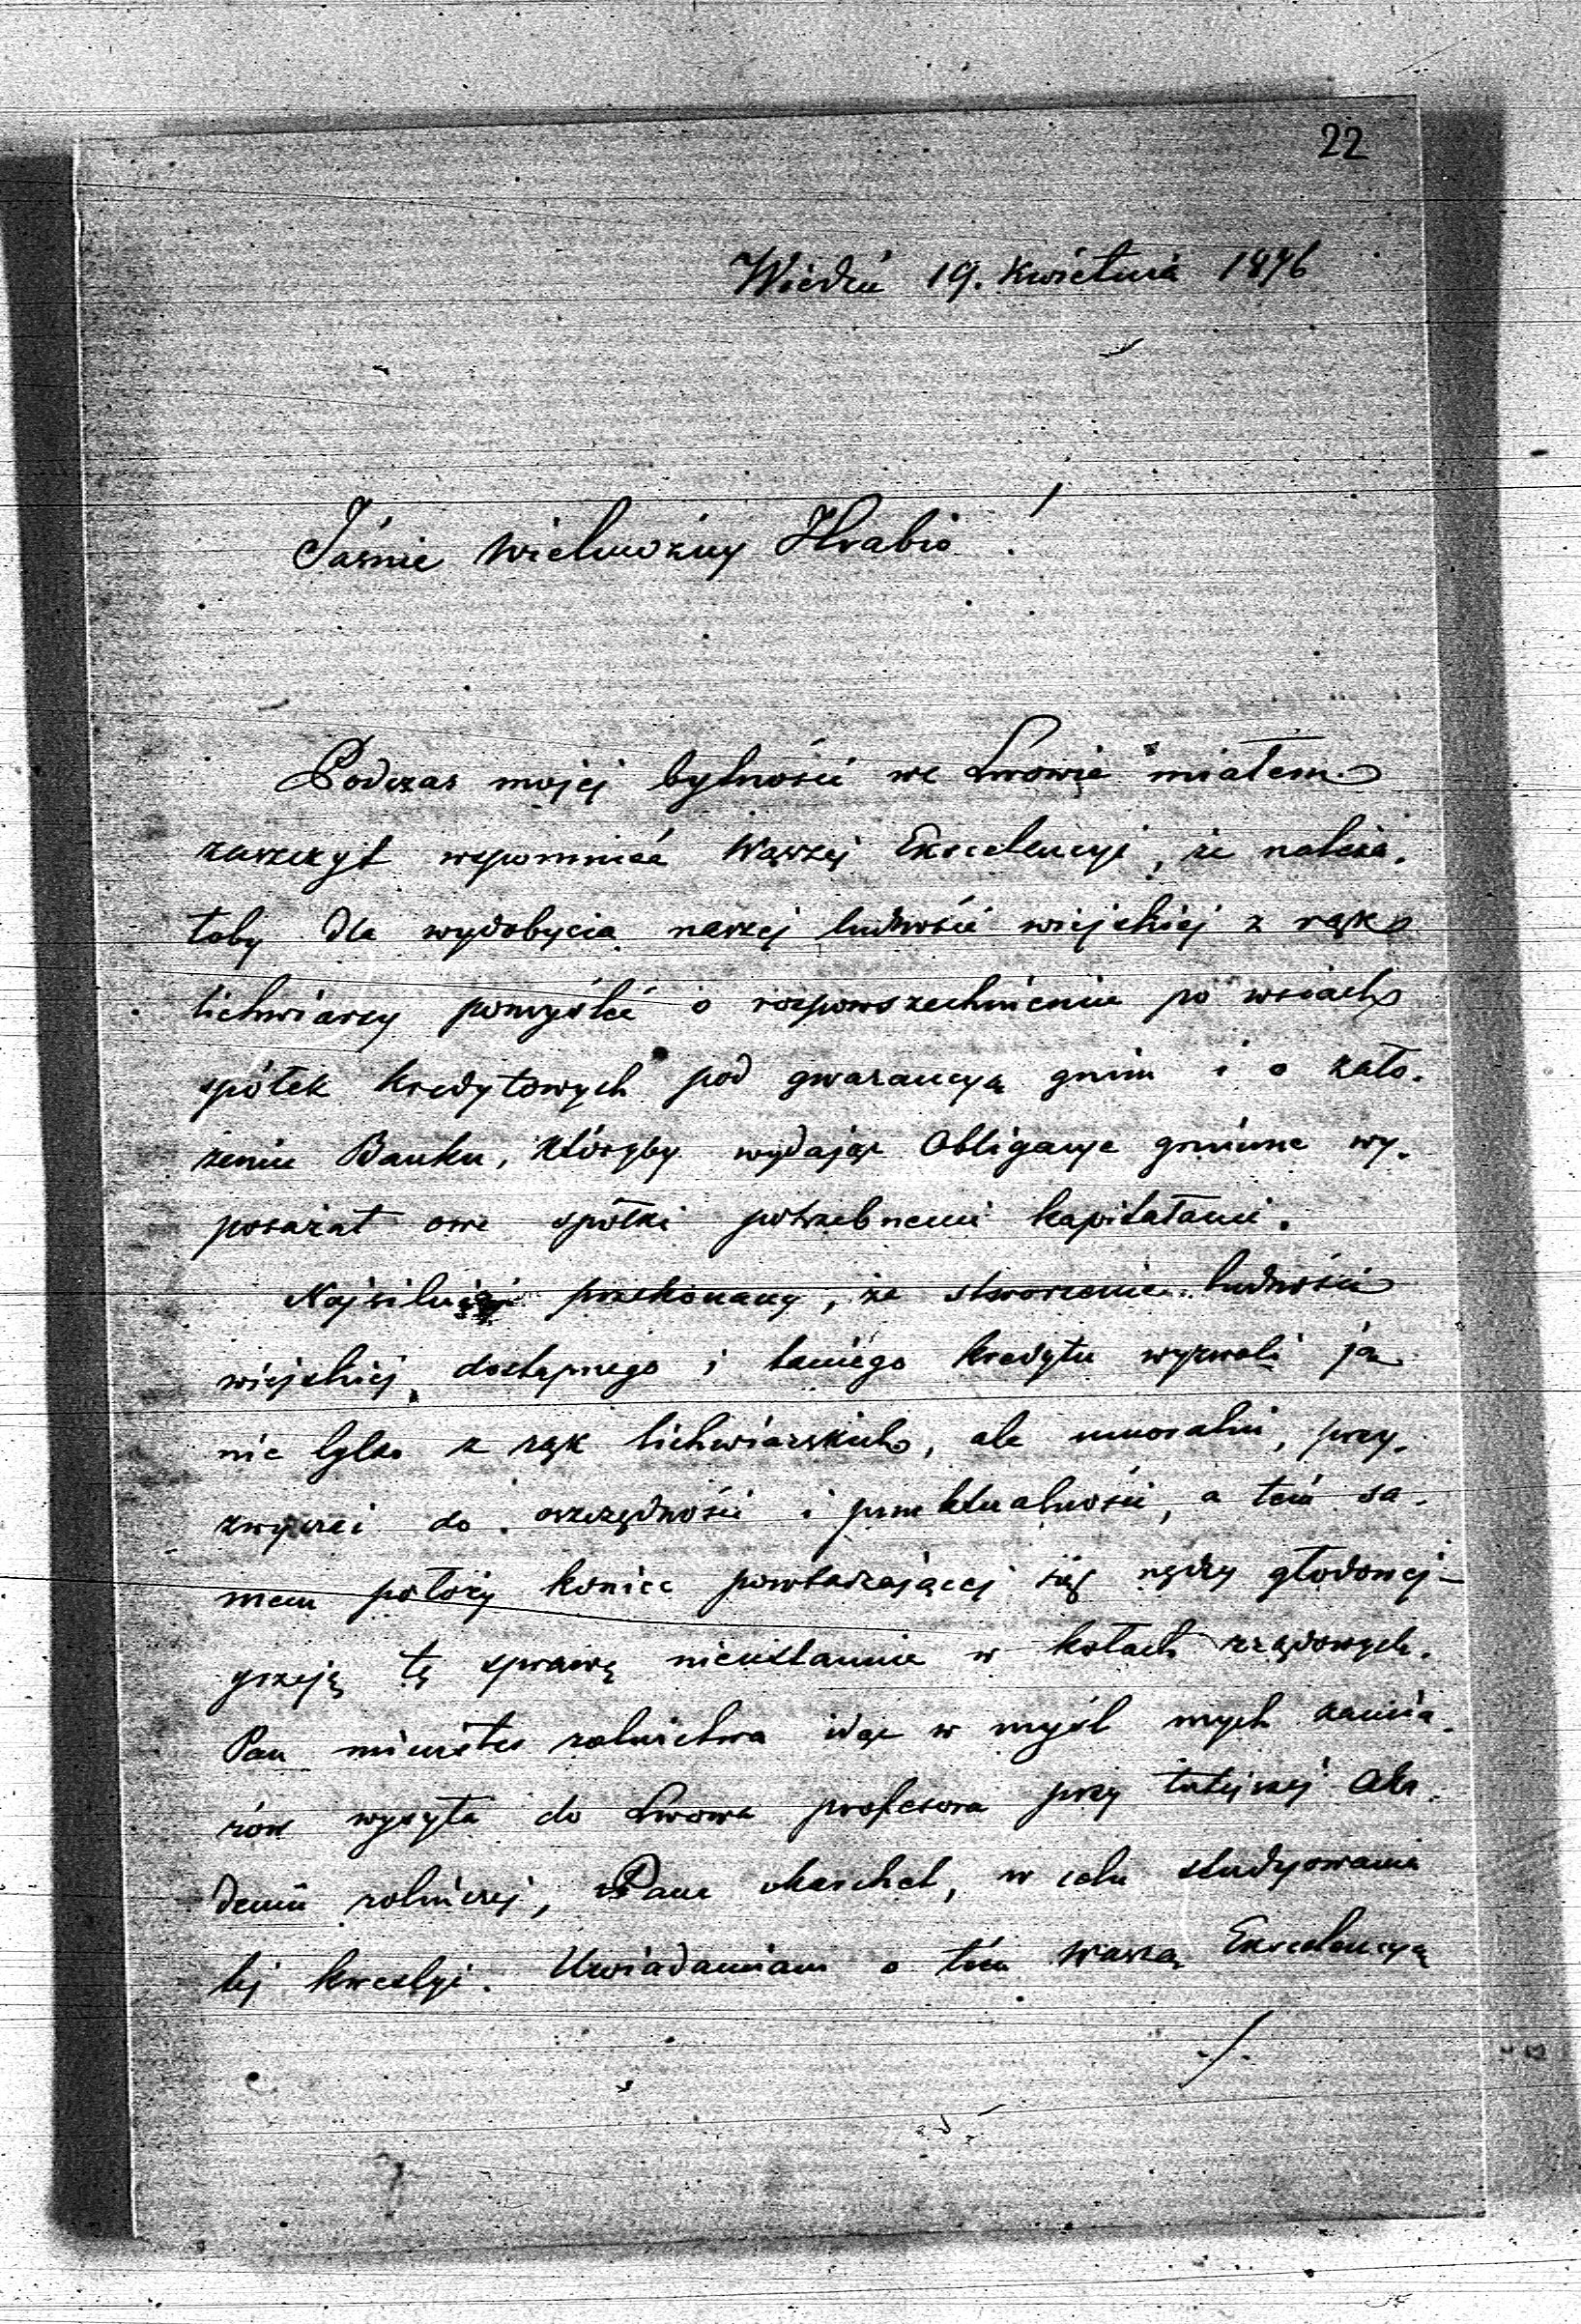 22
Wiedeń 19. Kwietnia 1876
Jaśnie Wielmożny Hrabio!
Podczas mojej bytności we Lwowie miałem
zaszczyt wspomnieć Waszej Excelencyi, że należa-
łoby dla wydobycia naszej ludności wiejskiej z rąk
lichwiarzy pomyśleć o rozpowszechnieniu po wsiach
spółek kredytowych pod gwarancyą gmin i o zało-
żeniu Banku, któryby wydając Obligacye gminne wy-
posażał owe spółki potrzebnemi kapitałami.
Najsilniej przekonany, że stworzenie ludności
wiejskiej dostępnego i taniego kredytu wyzwoli ją
nie tylko z rąk lichwiarskich, ale umoralni, przy-
zwyczai do oszczędności i punktualności, a tém sa-
mem położy koniec powtarzającej się nędzy głodowej –
grzeję tę sprawę nieustannie w kołach rządowych.
Pan minister rolnictwa idąc w myśl mych zamia-
rów wysyła do Lwowa profesora przy tutejszej Aka-
demii rolniczej, Pana Marchet, w celu studyowania
tej kwestyi. Uwiadamiam o tém Waszą Excelencyą
./.